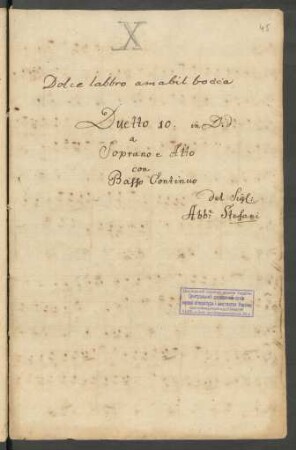 45
X
Dolce labbro amabil bocca
Duetto 10. in D.♯
a
Soprano e Alto
con
Basso Continuo
del Sigl:
Abb: Stefani